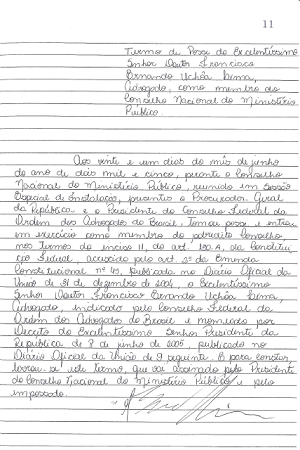 11
Termo de Posse do Excelentíssimo
Senhor Doutor Francisco
Ernando Uchôa Lima,
Advogado, como membro do
Conselho Nacional do Ministério
Público.
Aos vinte e um dias do mês de junho
do ano de dois mil e cinco, perante o Conselho
Nacional do Ministério Público, reunido em Sessão
Especial de Instalação, presentes o Procurador-Geral
da República e o Presidente do Conselho Federal da
Ordem dos Advogados do Brasil, tomou posse e entrou
em exercício como membro do referido Conselho,
nos termos do inciso II, do art. 130-A, da Constitui
ção Federal, acrescido pelo art. 2º da Emenda
Constitucional nº 45, publicada no Diário Oficial da
União de 31 de dezembro de 2004, o Excelentíssimo
Senhor Doutor Francisco Ernando Uchôa Lima,
Advogado, indicado pelo Conselho Federal da
Ordem dos Advogados do Brasil e nomeado por
Decreto do Excelentíssimo Senhor Presidente da
República de 8 de junho de 2005, publicado no
Diário Oficial da União de 9 seguinte. E para constar,
lavrou-se este termo, que vai assinado pelo Presidente
do Conselho Nacional do Ministério Público e pelo
empossado.